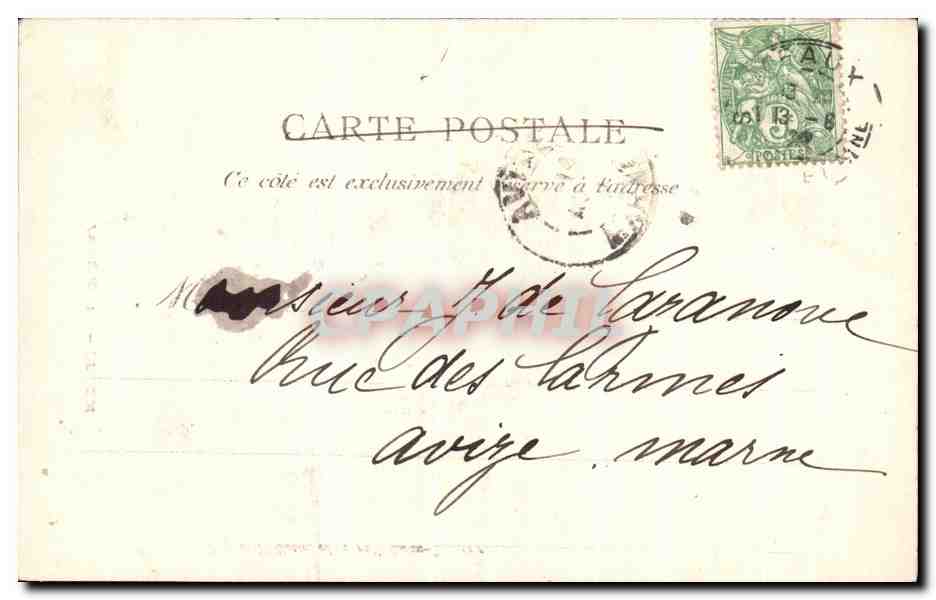 CARTE POSTALE
Ce côté est exclusivement réservé à l'adresse
5
POSTES
13
AVIZE
Monsieur J. de Cazanove
Rue des Larmes
Avize. Marne
CPAPHIL